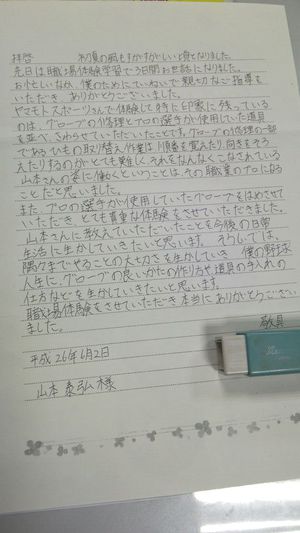 拝啓 初夏の風もすがすがしい頃となりました。
先日は職場体験学習で3日間お世話になりました。
お忙しいなか、僕のためにていねいで親切なご指導を
いただき、ありがとうございました。
ヤマモトスポーツさんで体験した時に印象に残っている
のは、グローブの修理とプロの選手が使用していた道具
を並べ、さわらせていただいたことです。グローブの修理の一部
であるひもの取り替え作業は順番を覚えたり、向きをそろ
えたりするのがとても難しく、それをなんなくこなされている
山本さんの姿に働くということは、その職業のプロになる
ことだと思いました。
また、プロの選手が使用していたグローブをはめさせて
いただき、とても重要な体験をさせていただきました。
山本さんに教えていただいたことを今後の日常
生活に生かしていきたいと思います。そうじでは、
隅々までやることの大切さを生かしていき、僕の野球
人生に、グローブの良いかたの作り方や道具の手入れの
仕方などを生かしていきたいと思います。
職場体験をさせていただき本当にありがとうござい
ました。
敬具
平成26年6月2日
山本泰弘様